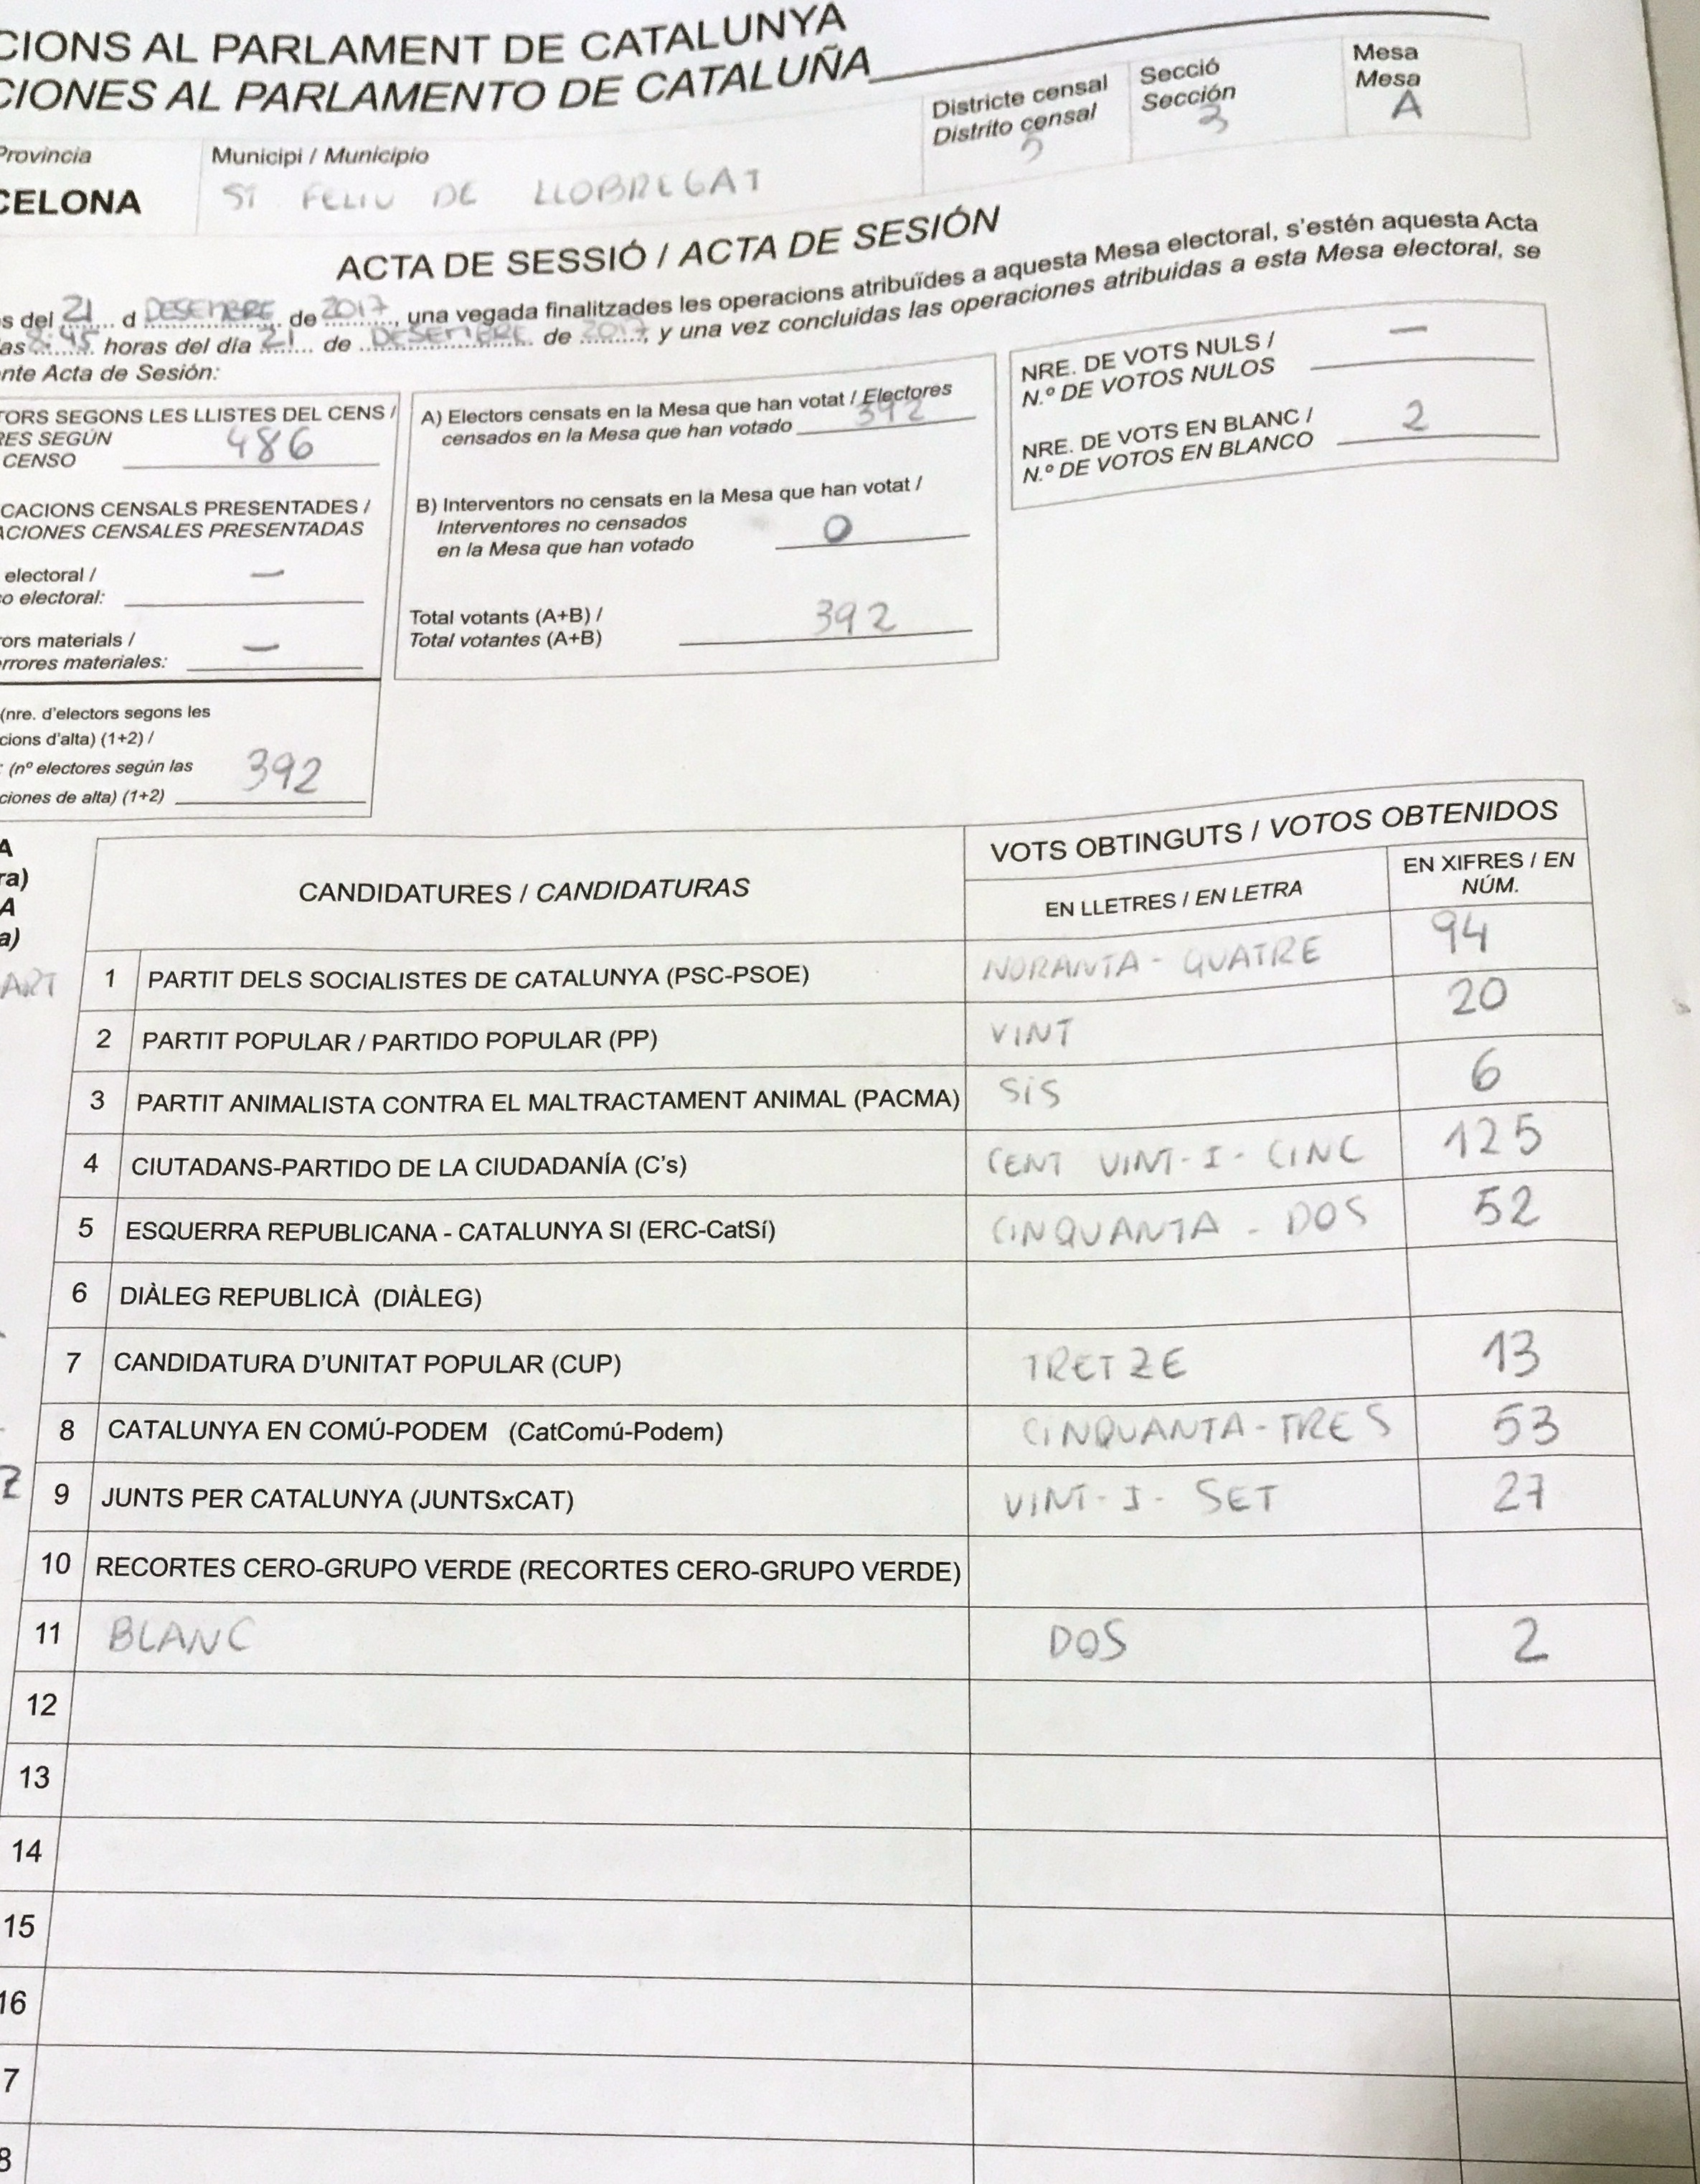 CIONS AL PARLAMENT DE CATALUNYA
CIONES AL PARLAMENTO DE CATALUÑA
Provincia
Municipi / Municipio
Districte censal
Distrito censal
Secció
Sección
Mesa
Mesa
CELONA
ST FELIU DE LLOBREGAT
3
A
ACTA DE SESSIÓ / ACTA DE SESIÓN
s del 21 d DESEMBRE de 2017 una vegada finalitzades les operacions atribuïdes a aquesta Mesa electoral, s'estén aquesta Acta
horas del día 21 de DESEMBRE de 2017, y una vez concluidas las operaciones atribuidas a esta Mesa electoral, se
nte Acta de Sesión:
TORS SEGONS LES LLISTES DEL CENS /
RES SEGÚN
CENSO
486
CACIONS CENSALS PRESENTADES /
ACIONES CENSALES PRESENTADAS
electoral /
o electoral:
–
rors materials /
rrores materiales:
–
(nre. d'electors segons les
cions d'alta) (1+2) /
(nº electores según las
ciones de alta) (1+2)
392
A) Electors censats en la Mesa que han votat / Electores
censados en la Mesa que han votado
392
B) Interventors no censats en la Mesa que han votat /
Interventores no censados
en la Mesa que han votado
0
Total votants (A+B) /
Total votantes (A+B)
392
NRE. DE VOTS NULS /
N.º DE VOTOS NULOS
–
NRE. DE VOTS EN BLANC /
N.º DE VOTOS EN BLANCO
2
CANDIDATURES / CANDIDATURAS
VOTS OBTINGUTS / VOTOS OBTENIDOS
EN LLETRES / EN LETRA
EN XIFRES / EN
NÚM.
1 PARTIT DELS SOCIALISTES DE CATALUNYA (PSC-PSOE) NORANTA-QUATRE 94
2 PARTIT POPULAR / PARTIDO POPULAR (PP) VINT 20
3 PARTIT ANIMALISTA CONTRA EL MALTRACTAMENT ANIMAL (PACMA) SIS 6
4 CIUTADANS-PARTIDO DE LA CIUDADANÍA (C's) CENT VINT-I-CINC 125
5 ESQUERRA REPUBLICANA - CATALUNYA SI (ERC-CatSí) CINQUANTA-DOS 52
6 DIÀLEG REPUBLICÀ (DIÀLEG)
7 CANDIDATURA D'UNITAT POPULAR (CUP) TRETZE 13
8 CATALUNYA EN COMÚ-PODEM (CatComú-Podem) CINQUANTA-TRES 53
9 JUNTS PER CATALUNYA (JUNTSxCAT) VINT-I-SET 27
10 RECORTES CERO-GRUPO VERDE (RECORTES CERO-GRUPO VERDE)
11 BLANC DOS 2
12
13
14
15
16
7
8